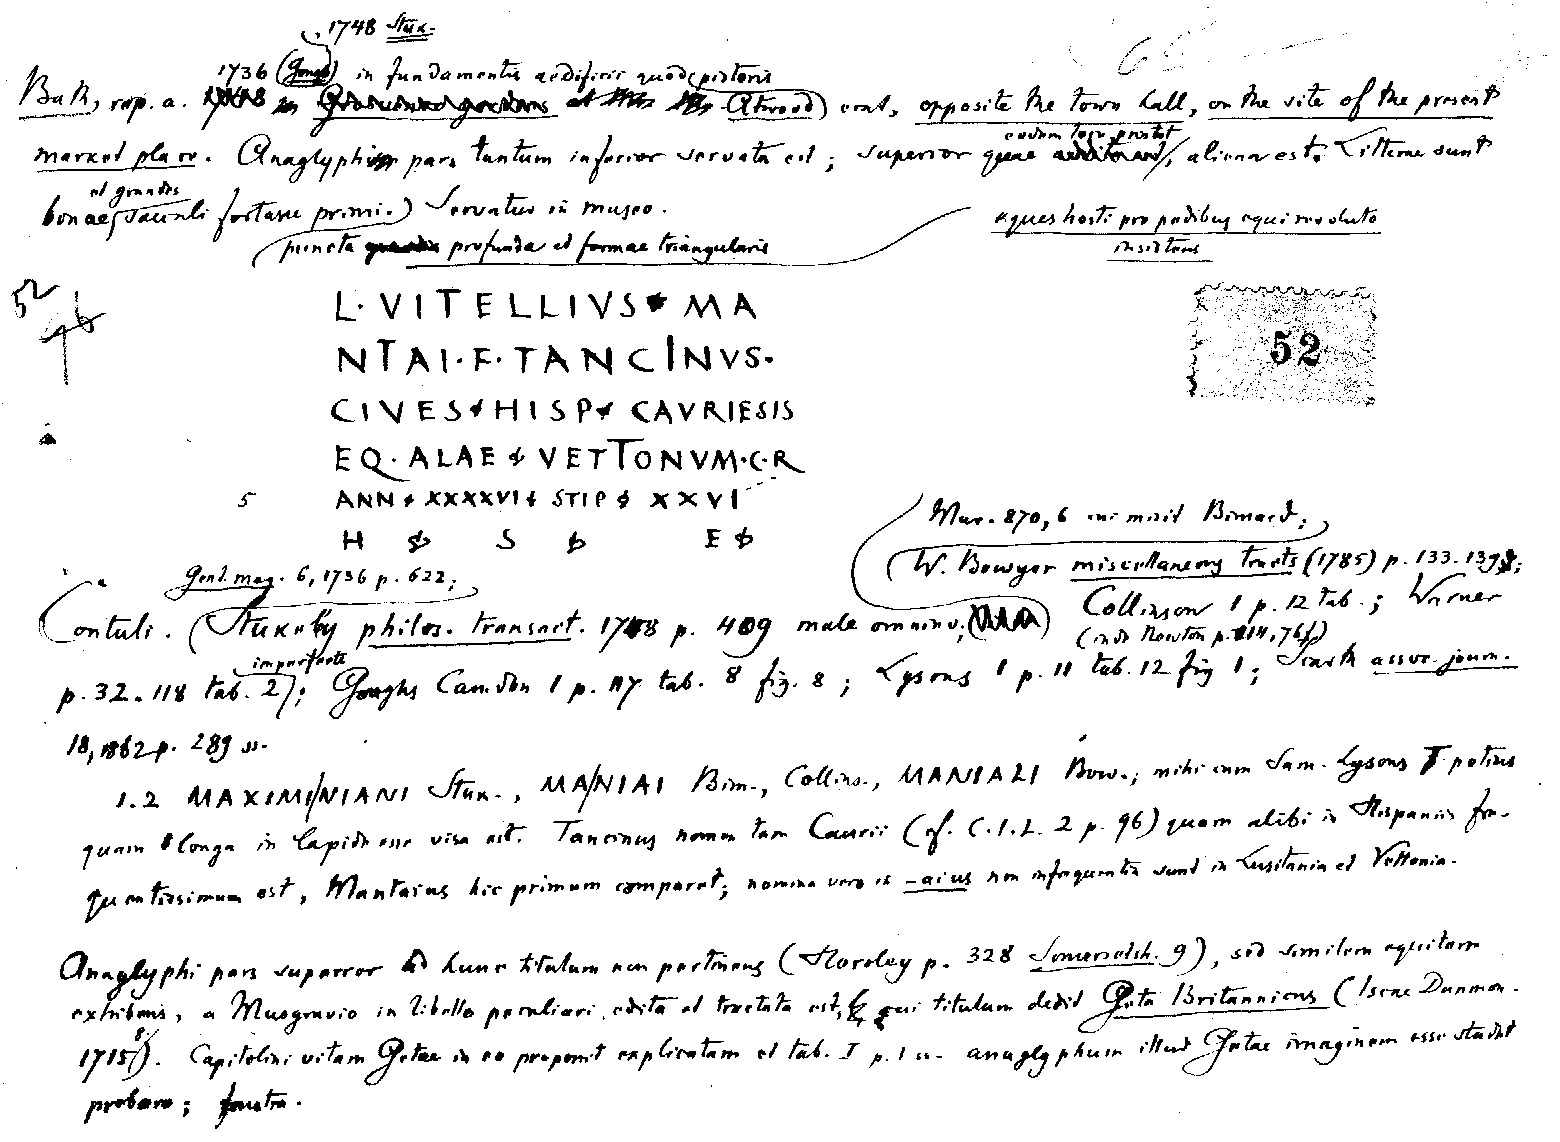 1748 Stuk.
1736 (Goug) in fundamentis aedificii quod (pistoris
Bath, rep. a. Atwood) erat, opposite the town hall, on the site of the present
eodem loco prostat
market place. Anaglyphi pars tantum inferior servata est; superior quae, aliena est. Litterae sunt
et grandes
bonae, (saeculi fortasse primi.) Servatur in museo.
puncta profunda et formae triangularis
eques hosti pro pedibus equi revoluto
insistens
52
L · VITELLIVS MA
NTAI · F · TANCINVS ·
CIVES HISP CAVRIESIS
EQ · ALAE VETTONVM · C · R
5 ANN XXXXVI STIP XXVI
H S E
52
Mur. 870,6 cui misit Bimard;
W. Bowyer miscellaneous tracts (1785) p. 133. 139;
Gent. mag. 6, 1736 p. 622;
Contuli. (Stukely philos. transact. 1748 p. 409 male omnino; Collinson 1 p. 12 tab.; Warner
(inde Newton p. 76)
imperfecte
p. 32. 118 tab. 2); Goughs Camden 1 p. 117 tab. 8 fig. 8; Lysons 1 p. 11 tab. 12 fig 1; Scarth assoc. journ.
18, 1862 p. 289 ss.
1.2 MAXIMINIANI Stuk., MANIAI Bim., Collins., MANIALI Bow.; mihi cum Sam. Lysons T potius
quam I longa in lapide esse visa est. Tancinus nomen tam Caurii (cf. C.I.L. 2 p. 96) quam alibi in Hispaniis fre-
quentissimum est, Mantaius hic primum comparet; nomina vero in -aius non infrequentia sunt in Lusitania et Vettonia.
Anaglyphi pars superior ad hunc titulum non pertinens (Horsley p. 328 Somersetsh. 9), sed similem equitem
exhibens, a Musgravio in libello peculiari edita et tractata est, cui titulum dedit Geta Britannicus (Iscae Dunmon.
1715 8). Capitolini vitam Getae in eo proponit explicatam et tab. I p. 1 ss. anaglyphum illud Getae imaginem esse studet
probare; frustra.